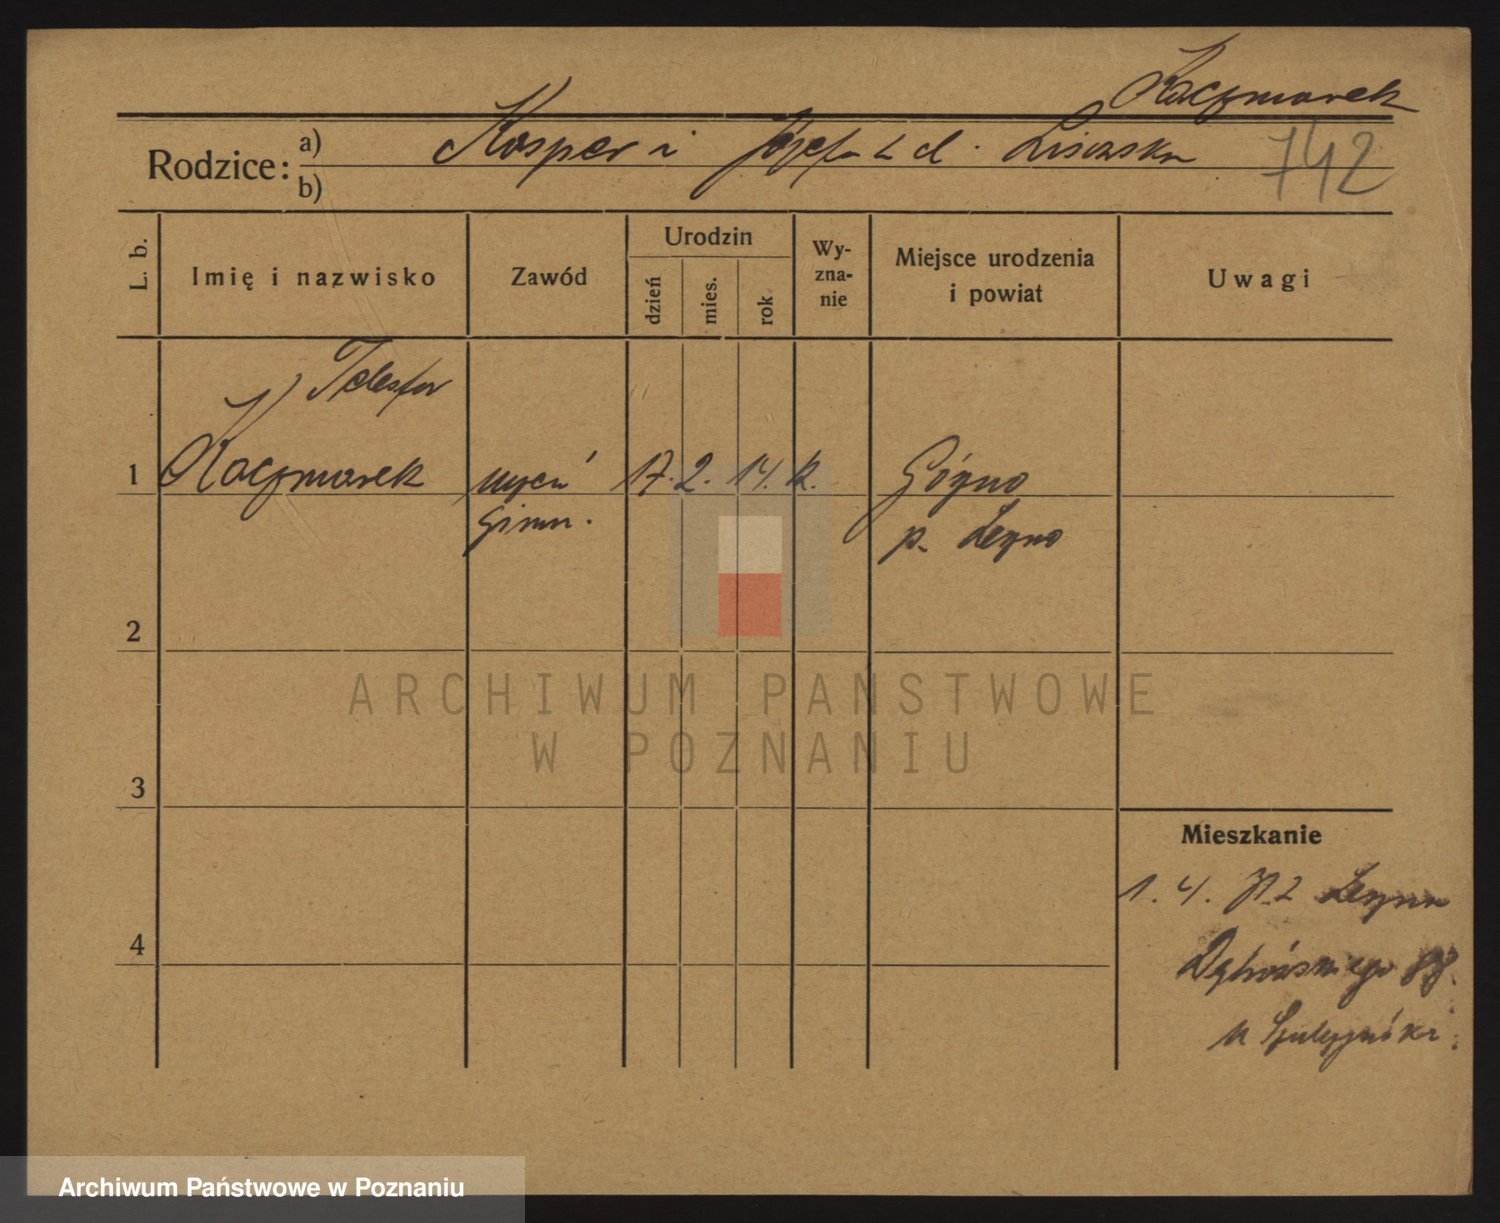 Kaczmarek
Rodzice: a) Kasper i Józefa z d.
b)
742
L. b.
Imię i nazwisko
Zawód
Urodzin
dzień
mies.
rok
Wy-
zna-
nie
Miejsce urodzenia
i powiat
Uwagi
Telesfor
1 Kaczmarek uczeń 17. 2. 14. k. Góźno
gimn. p. Leszno
2
3
4
Mieszkanie
1. 4. Leszno
Dąbrowskiego
u
ARCHIWUM PAŃSTWOWE
W POZNANIU
Archiwum Państwowe w Poznaniu